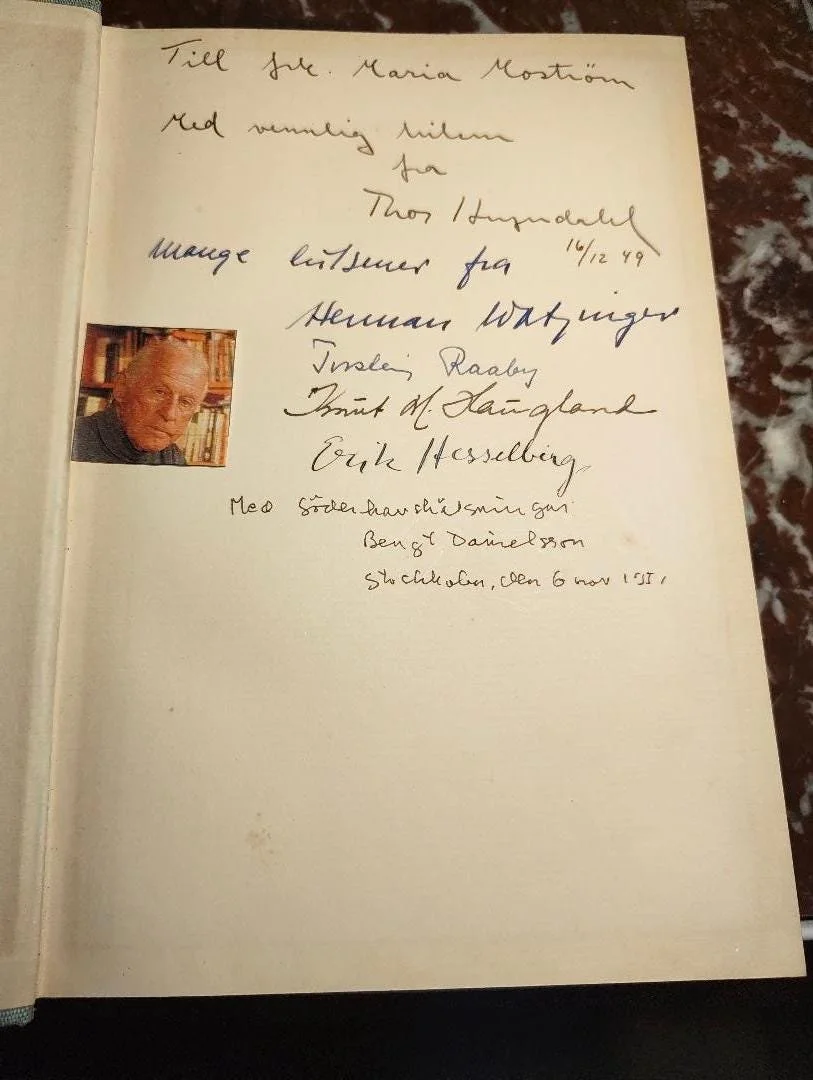 Till frk. Maria Moström
Med vennlig hilsen
fra
Thor Heyerdahl
16/12 49
Mange hilsener fra
Herman Watzinger
Torstein Raaby
Knut M. Haugland
Erik Hesselberg
Med söderhavshälsningar
Bengt Danielsson
Stockholm, den 6 nov 1951